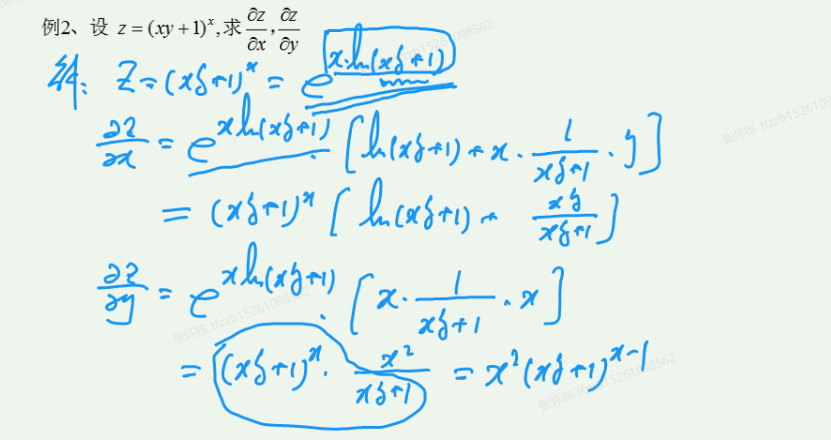 例2、设 z = (xy+1)^x, 求 ∂z/∂x, ∂z/∂y
解: z = (xy+1)^x = e^{x·ln(xy+1)}
∂z/∂x = e^{x ln(xy+1)} · [ln(xy+1) + x · 1/(xy+1) · y]
= (xy+1)^x [ln(xy+1) + xy/(xy+1)]
∂z/∂y = e^{x ln(xy+1)} · [x · 1/(xy+1) · x]
= (xy+1)^x · x²/(xy+1) = x²(xy+1)^{x-1}